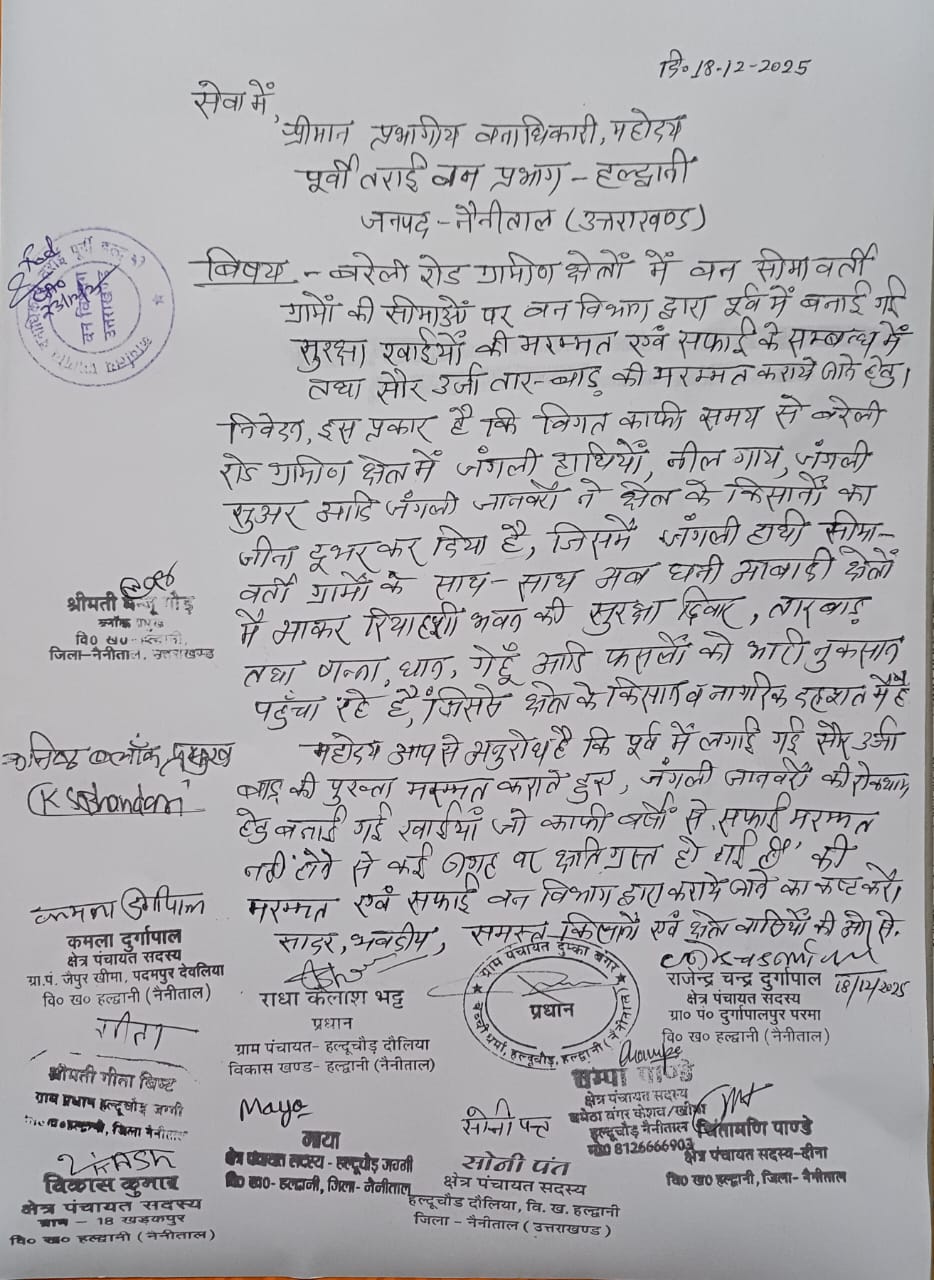 दि० 18-12-2025
सेवा में,
श्रीमान प्रभागीय वनाधिकारी, महोदय
पूर्वी तराई वन प्रभाग - हल्द्वानी
जनपद - नैनीताल (उत्तराखण्ड)
विषय - बरेली रोड ग्रामीण क्षेत्रों में वन सीमावर्ती
ग्रामों की सीमाओं पर वन विभाग द्वारा पूर्व में बनाई गई
सुरक्षा खाईयों की मरम्मत एवं सफाई के सम्बन्ध में
तथा सौर उर्जा तार-बाड़ की मरम्मत कराये जाने हेतु।
निवेदन, इस प्रकार है कि विगत काफी समय से बरेली
रोड ग्रामीण क्षेत्र में जंगली हाथियों, नील गाय, जंगली
सुअर आदि जंगली जानवरों ने क्षेत्र के किसानों का
जीना दूभर कर दिया है, जिसमें जंगली हाथी सीमा-
वर्ती ग्रामों के साथ-साथ अब घनी आबादी क्षेत्रों
में आकर रियाहशी भवन की सुरक्षा दिवार, तारबाड़
तथा गन्ना, धान, गेहूँ आदि फसलों को भारी नुकसान
पहुँचा रहे हैं, जिससे क्षेत्र के किसान व नागरिक दहशत में है
महोदय आप से अनुरोध है कि पूर्व में लगाई गई सौर उर्जा
बाड़ की पुख्ता मरम्मत कराते हुए, जंगली जानवरों की रोकथाम
हेतु बनाई गई खाईयाँ जो काफी वर्षों से सफाई मरम्मत
नहीं होने से कई जगह पर क्षतिग्रस्त हो गई हैं की
मरम्मत एवं सफाई वन विभाग द्वारा कराये जाने का कष्ट करें।
सादर, भवदीय, समस्त किसानों एवं क्षेत्र वासियों की ओर से.
वन विभाग
उत्तराखण्ड
श्रीमती मन्जू गौड़
ब्लॉक प्रमुख
वि० ख०-हल्द्वानी,
जिला-नैनीताल, उत्तराखण्ड
कनिष्ठ ब्लॉक प्रमुख
कमला दुर्गापाल
कमला दुर्गापाल
क्षेत्र पंचायत सदस्य
ग्रा.पं. जैपुर खीमा, पदमपुर देवलिया
वि० ख० हल्द्वानी (नैनीताल)
राधा कैलाश भट्ट
प्रधान
ग्राम पंचायत- हल्दूचौड़ दौलिया
विकास खण्ड- हल्द्वानी (नैनीताल)
ग्राम पंचायत दुम्का बंगर
प्रधान
बच्चीधर्मा, हल्दूचौड़, हल्द्वानी (नैनीताल)
राजेन्द्र चन्द्र दुर्गापाल
18/12/2025
क्षेत्र पंचायत सदस्य
ग्रा० पं० दुर्गापालपुर परमा
वि० ख० हल्द्वानी (नैनीताल)
गीता
श्रीमती गीता बिष्ट
ग्राम प्रधान हल्दूचौड़ जग्गी
हल्द्वानी, जिला नैनीताल
Maya
माया
क्षेत्र पंचायत सदस्य - हल्दूचौड़ जग्गी
वि० ख०- हल्द्वानी, जिला- नैनीताल
सोनी पन्त
सोनी पंत
क्षेत्र पंचायत सदस्य
हल्दूचौड़ दौलिया, वि. ख. हल्द्वानी
जिला - नैनीताल (उत्तराखण्ड)
चम्पा पाण्डे
क्षेत्र पंचायत सदस्य
बमेठा बंगर केशव/खीमा
हल्दूचौड़ नैनीताल
मो० 8126666903
चिंतामणि पाण्डे
क्षेत्र पंचायत सदस्य-दीना
वि० ख० हल्द्वानी, जिला- नैनीताल
VIKASH
विकास कुमार
क्षेत्र पंचायत सदस्य
ग्राम - 18 खड़कपुर
वि० ख० हल्द्वानी (नैनीताल)